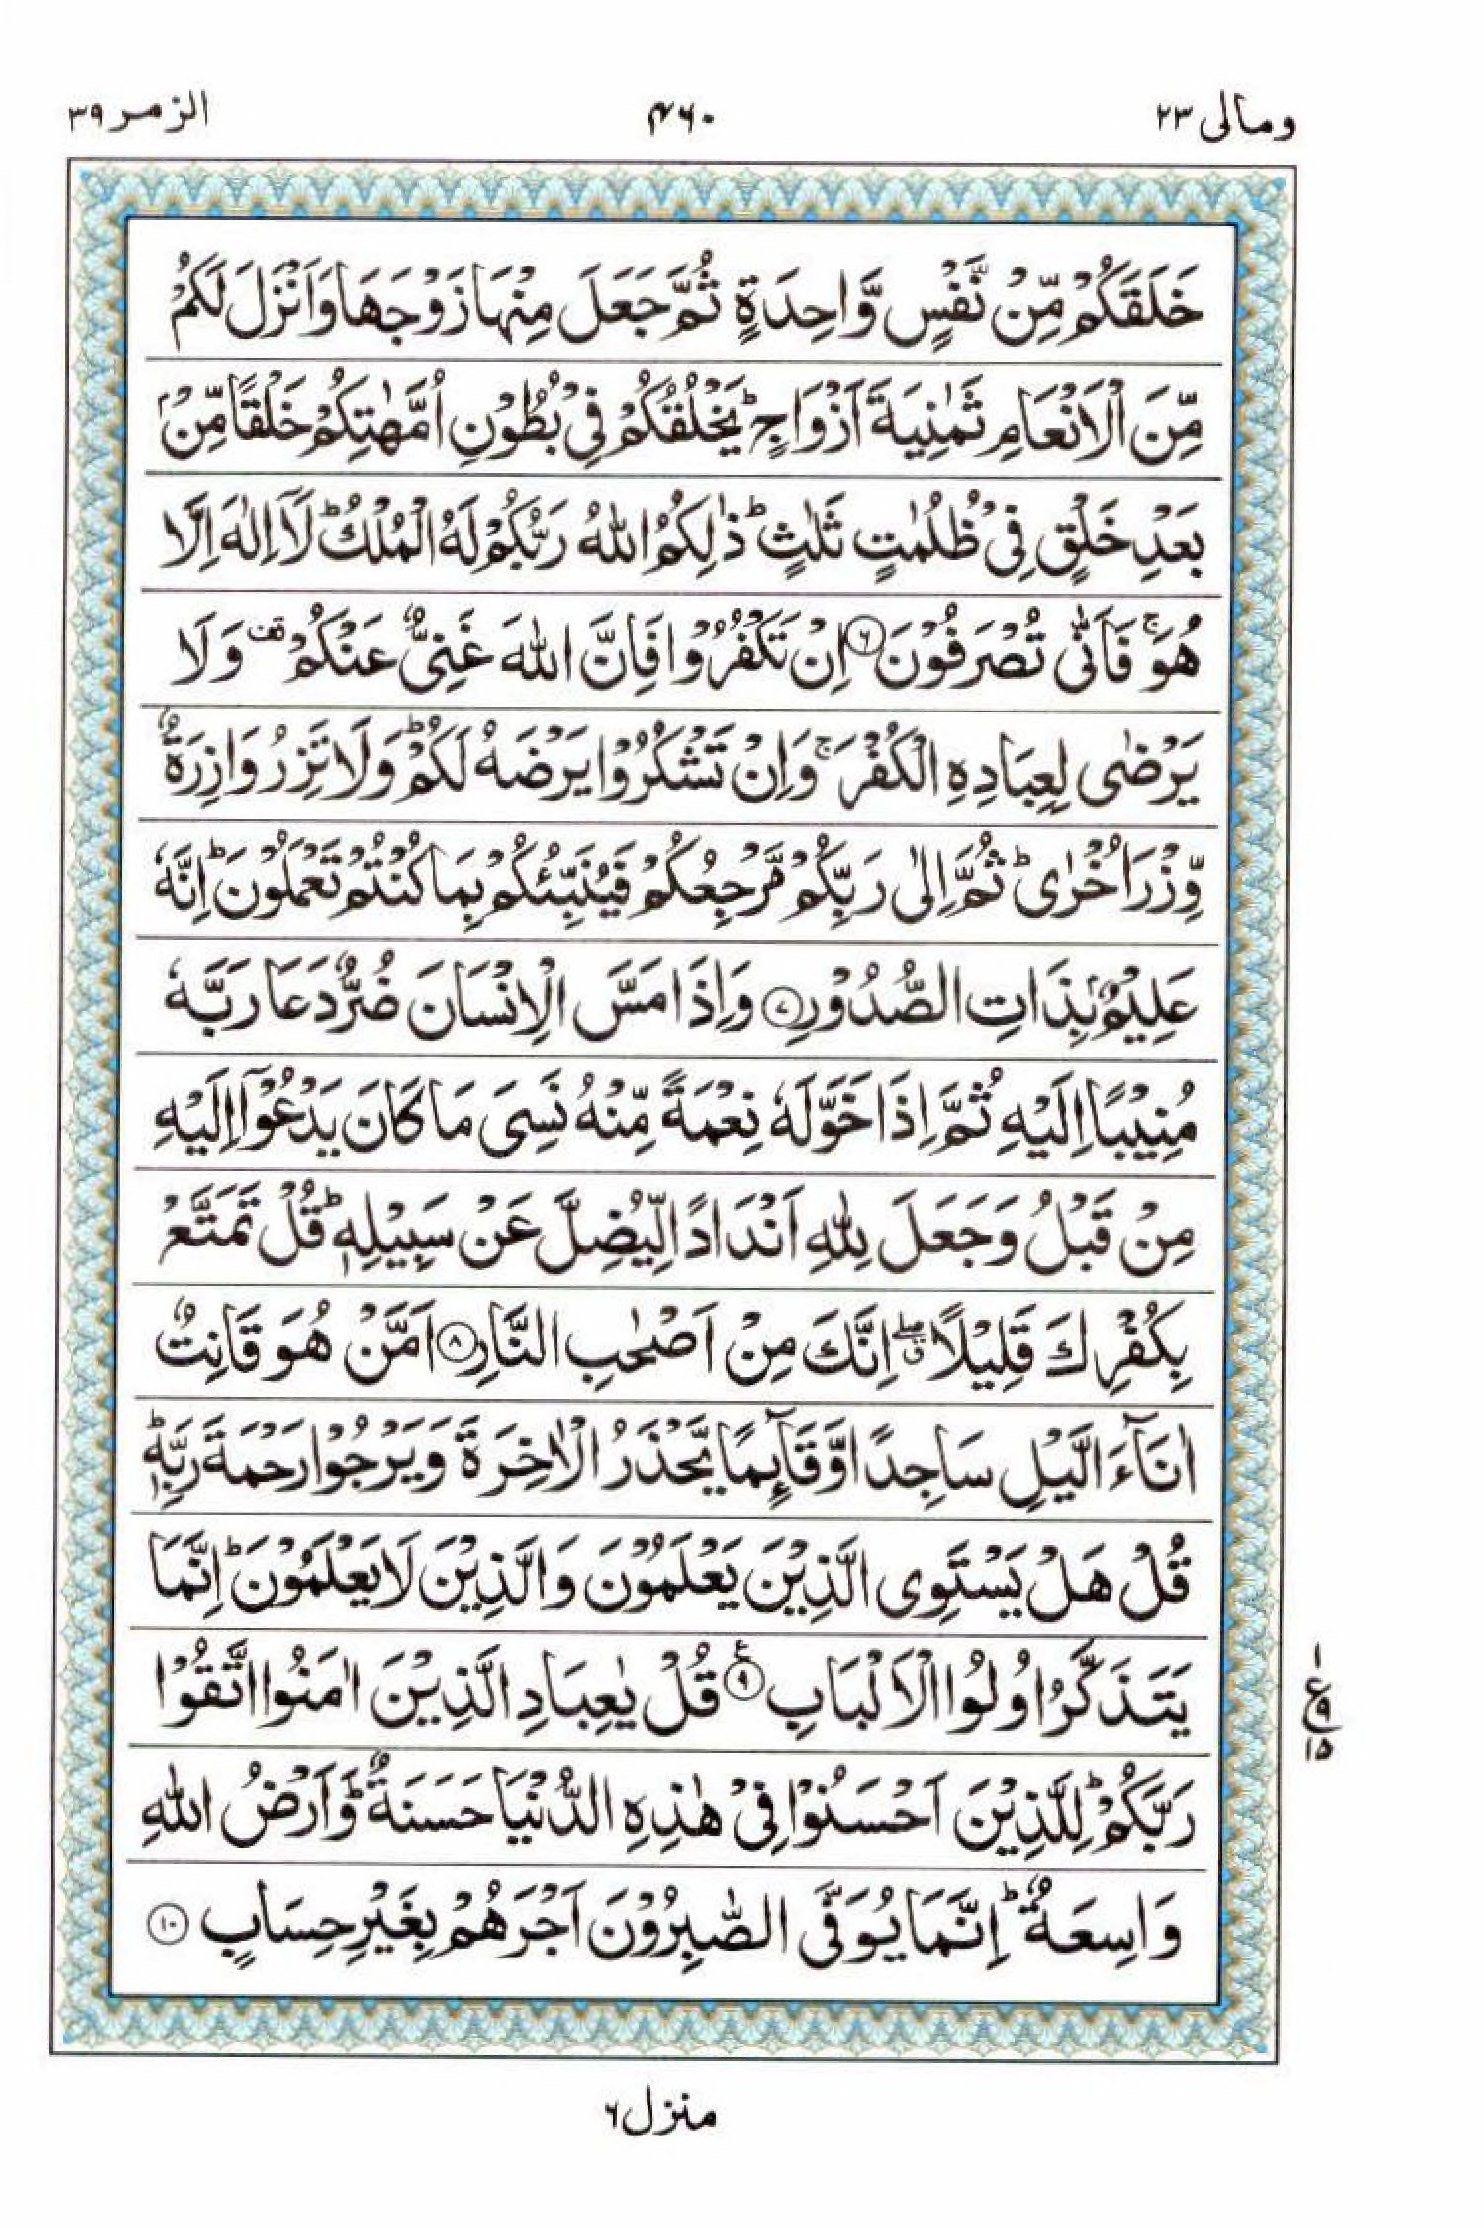 ومالی ۲۳ ۴۶۰ الزمر ۳۹
خَلَقَكُمْ مِّنْ نَّفْسٍ وَّاحِدَةٍ ثُمَّ جَعَلَ مِنْهَا زَوْجَهَا وَاَنْزَلَ لَكُمْ
مِّنَ الْاَنْعَامِ ثَمٰنِيَةَ اَزْوَاجٍ ؕ يَخْلُقُكُمْ فِيْ بُطُوْنِ اُمَّهٰتِكُمْ خَلْقًا مِّنْۢ
بَعْدِ خَلْقٍ فِيْ ظُلُمٰتٍ ثَلٰثٍ ؕ ذٰلِكُمُ اللّٰهُ رَبُّكُمْ لَهُ الْمُلْكُ ؕ لَاۤ اِلٰهَ اِلَّا
هُوَ ۚ فَاَنّٰى تُصْرَفُوْنَ ۶ اِنْ تَكْفُرُوْا فَاِنَّ اللّٰهَ غَنِيٌّ عَنْكُمْ قف وَلَا
يَرْضٰى لِعِبَادِهِ الْكُفْرَ ۚ وَاِنْ تَشْكُرُوْا يَرْضَهُ لَكُمْ ؕ وَلَا تَزِرُ وَازِرَةٌ
وِّزْرَ اُخْرٰى ؕ ثُمَّ اِلٰى رَبِّكُمْ مَّرْجِعُكُمْ فَيُنَبِّئُكُمْ بِمَا كُنْتُمْ تَعْمَلُوْنَ ؕ اِنَّهٗ
عَلِيْمٌۢ بِذَاتِ الصُّدُوْرِ ۷ وَاِذَا مَسَّ الْاِنْسَانَ ضُرٌّ دَعَا رَبَّهٗ
مُنِيْبًا اِلَيْهِ ثُمَّ اِذَا خَوَّلَهٗ نِعْمَةً مِّنْهُ نَسِيَ مَا كَانَ يَدْعُوْۤا اِلَيْهِ
مِنْ قَبْلُ وَجَعَلَ لِلّٰهِ اَنْدَادًا لِّيُضِلَّ عَنْ سَبِيْلِهٖ ؕ قُلْ تَمَتَّعْ
بِكُفْرِكَ قَلِيْلًا ۖق اِنَّكَ مِنْ اَصْحٰبِ النَّارِ ۸ اَمَّنْ هُوَ قَانِتٌ
اٰنَآءَ الَّيْلِ سَاجِدًا وَّقَآئِمًا يَّحْذَرُ الْاٰخِرَةَ وَيَرْجُوْا رَحْمَةَ رَبِّهٖ ؕ
قُلْ هَلْ يَسْتَوِى الَّذِيْنَ يَعْلَمُوْنَ وَالَّذِيْنَ لَا يَعْلَمُوْنَ ؕ اِنَّمَا
يَتَذَكَّرُ اُولُوا الْاَلْبَابِ ۹ ع قُلْ يٰعِبَادِ الَّذِيْنَ اٰمَنُوا اتَّقُوْا
۱ ع ۹ ۱۵
رَبَّكُمْ ؕ لِلَّذِيْنَ اَحْسَنُوْا فِيْ هٰذِهِ الدُّنْيَا حَسَنَةٌ ؕ وَاَرْضُ اللّٰهِ
وَاسِعَةٌ ؕ اِنَّمَا يُوَفَّى الصّٰبِرُوْنَ اَجْرَهُمْ بِغَيْرِ حِسَابٍ ۱۰
منزل ۶